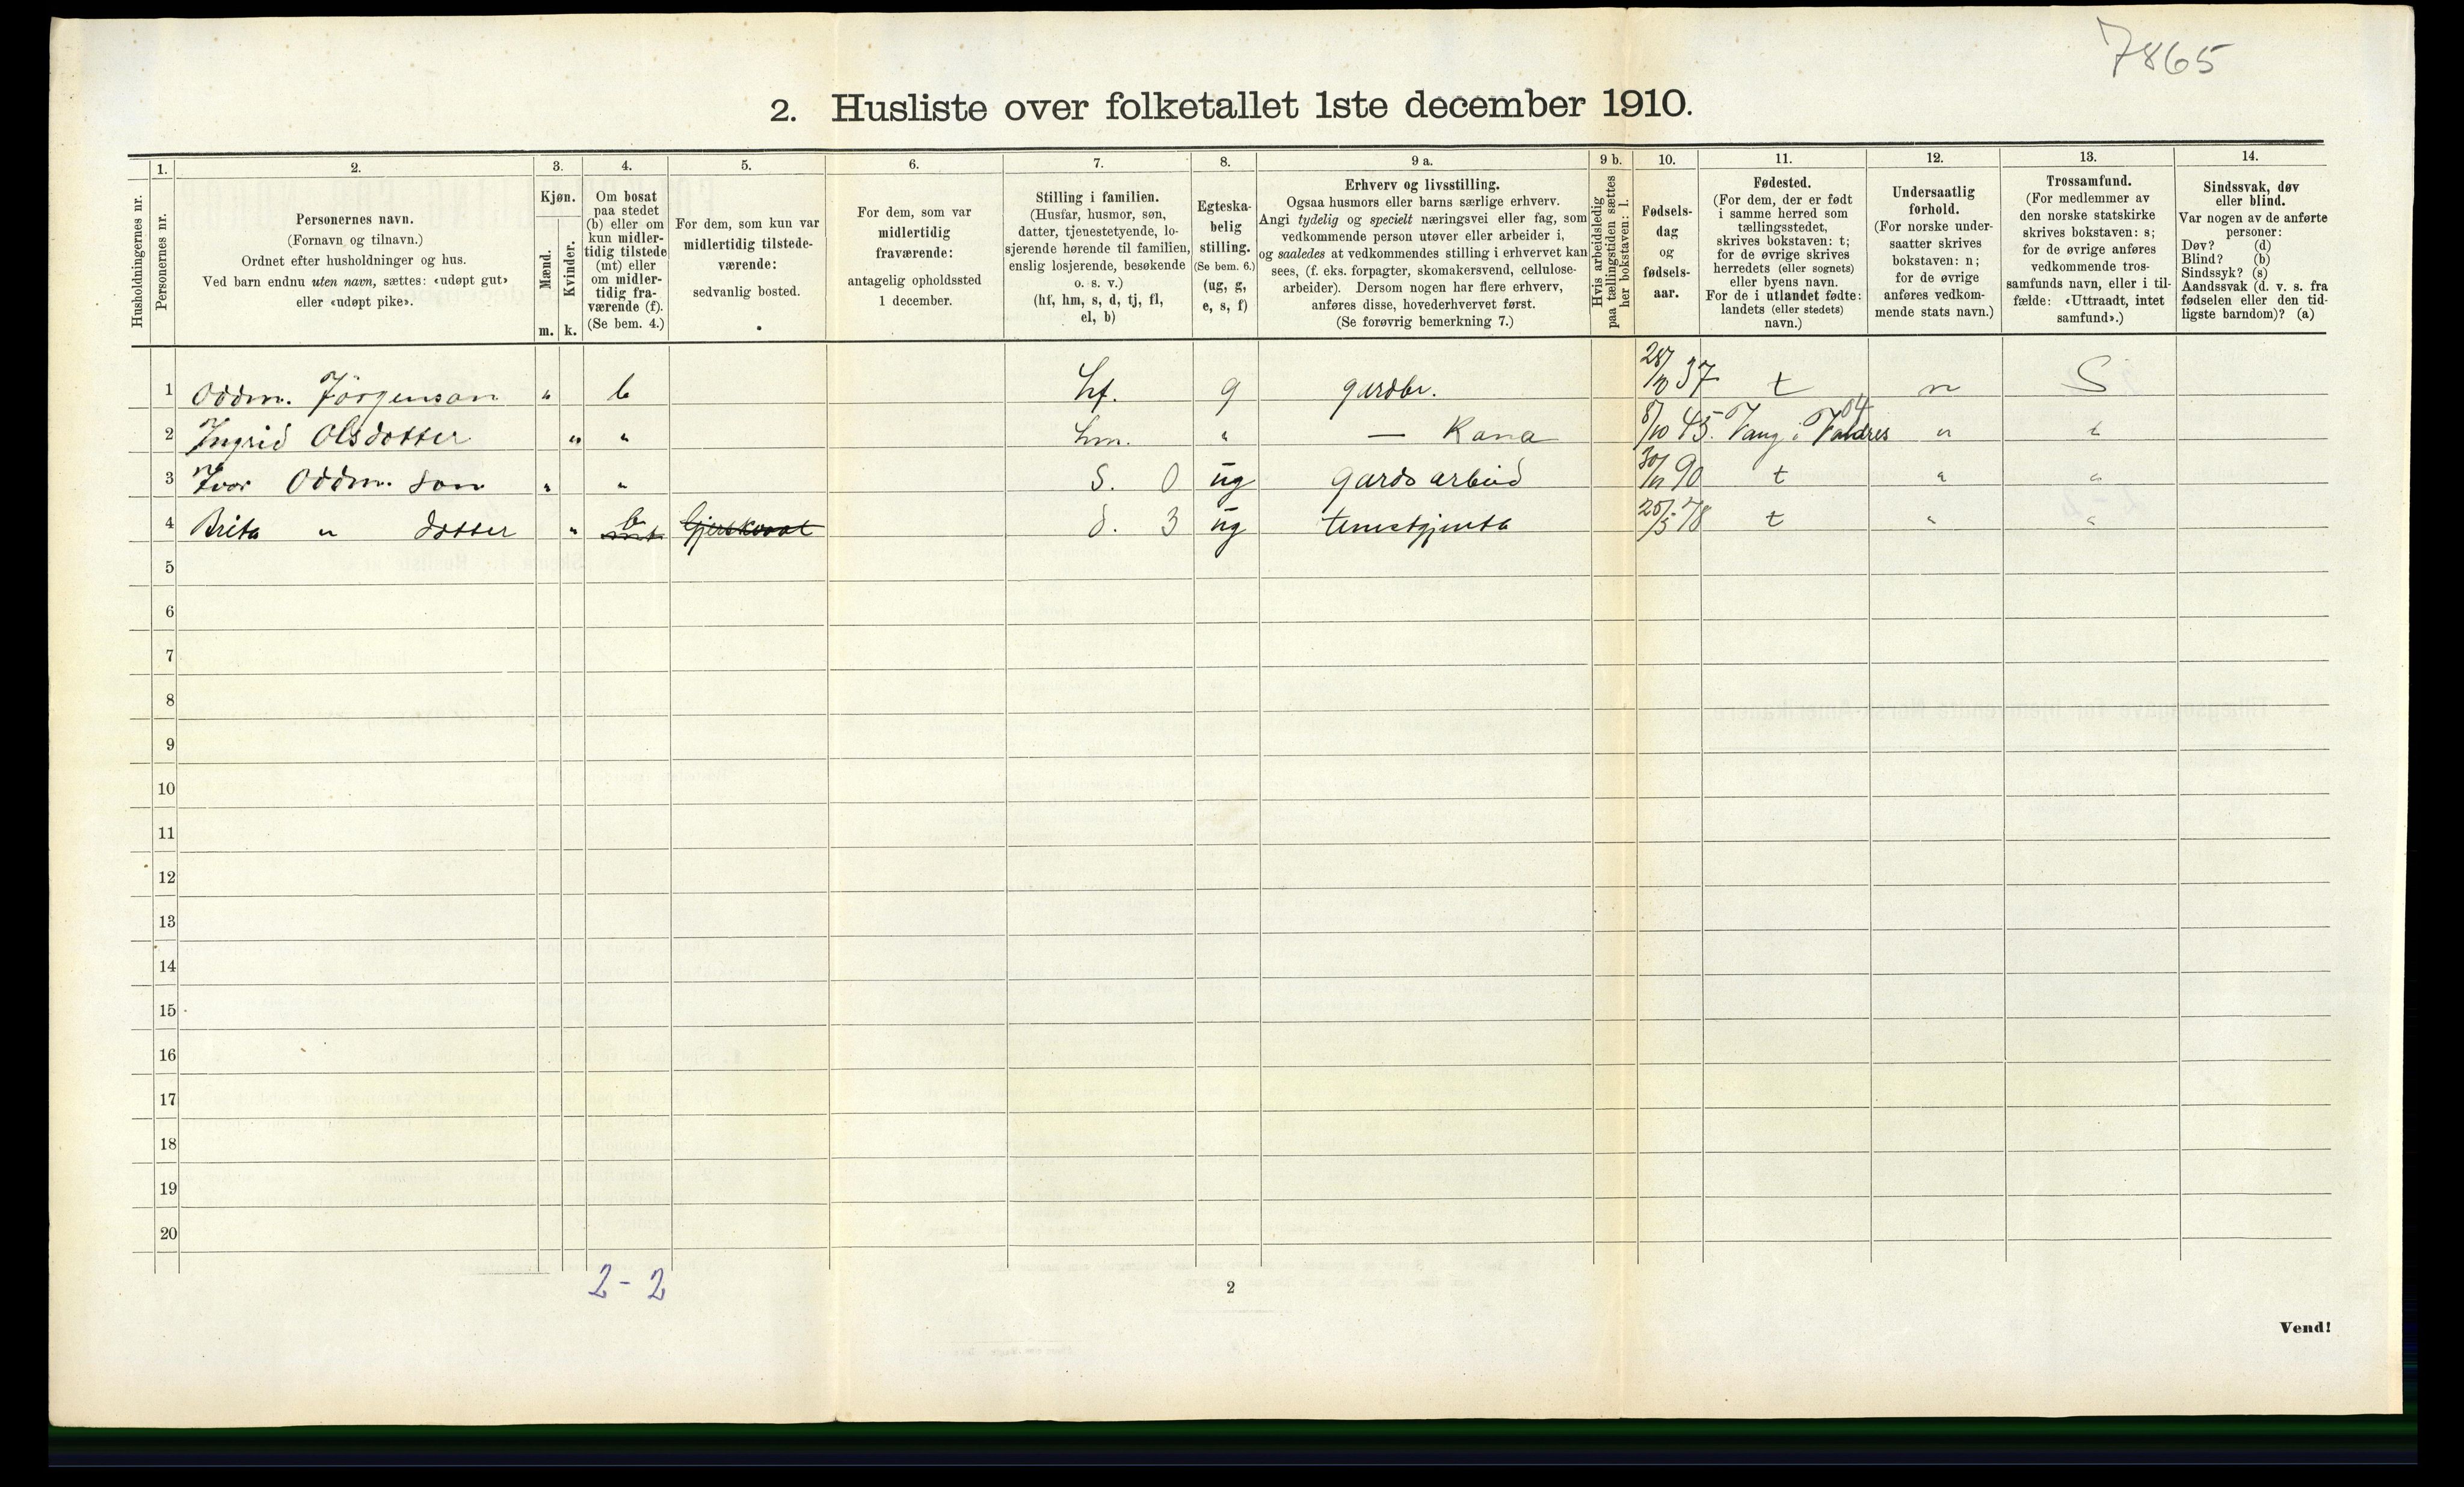 7865
2. Husliste over folketallet 1ste december 1910.
Husholdningernes nr.
1.
Personernes nr.
2.
Personernes navn.
(Fornavn og tilnavn.)
Ordnet efter husholdninger og hus.
Ved barn endnu uten navn, sættes: «udøpt gut»
eller «udøpt pike».
3.
Kjøn.
Mænd.
Kvinder.
m. k.
4.
Om bosat
paa stedet
(b) eller om
kun midler-
tidig tilstede
(mt) eller
om midler-
tidig fra-
værende (f).
(Se bem. 4.)
5.
For dem, som kun var
midlertidig tilstede-
værende:
sedvanlig bosted.
6.
For dem, som var
midlertidig
fraværende:
antagelig opholdssted
1 december.
7.
Stilling i familien.
(Husfar, husmor, søn,
datter, tjenestetyende, lo-
sjerende hørende til familien,
enslig losjerende, besøkende
o. s. v.)
(hf, hm, s, d, tj, fl,
el, b)
8.
Egteska-
belig
stilling.
(Se bem. 6.)
(ug, g,
e, s, f)
9 a.
Erhverv og livsstilling.
Ogsaa husmors eller barns særlige erhverv.
Angi tydelig og specielt næringsvei eller fag, som
vedkommende person utøver eller arbeider i,
og saaledes at vedkommendes stilling i erhvervet kan
sees, (f. eks. forpagter, skomakersvend, cellulose-
arbeider). Dersom nogen har flere erhverv,
anføres disse, hovederhvervet først.
(Se forøvrig bemerkning 7.)
9 b.
Hvis arbeidsledig
paa tællingstiden sættes
her bokstaven: l.
10.
Fødsels-
dag
og
fødsels-
aar.
11.
Fødested.
(For dem, der er født
i samme herred som
tællingsstedet,
skrives bokstaven: t;
for de øvrige skrives
herredets (eller sognets)
eller byens navn.
For de i utlandet fødte:
landets (eller stedets)
navn.)
12.
Undersaatlig
forhold.
(For norske under-
saatter skrives
bokstaven: n;
for de øvrige
anføres vedkom-
mende stats navn.)
13.
Trossamfund.
(For medlemmer av
den norske statskirke
skrives bokstaven: s;
for de øvrige anføres
vedkommende tros-
samfunds navn, eller i til-
fælde: «Uttraadt, intet
samfund».)
14.
Sindssvak, døv
eller blind.
Var nogen av de anførte
personer:
Døv? (d)
Blind? (b)
Sindssyk? (s)
Aandssvak (d. v. s. fra
fødselen eller den tid-
ligste barndom)? (a)
1 Oddm. Jörgenson " b hf. g gardbr. 28/10 37 t n S
2 Ingrid Olsdotter " " hm. " — Kona 8/10 45. Vang i Valdres 04 " "
3 Ivar Oddm. son " " s. 0 ug gardsarbeid 30/11 90 t " "
4 Brita " dotter " b mt d. 3 ug tenestgjenta 25/5 78 t " "
5
6
7
8
9
10
11
12
13
14
15
16
17
18
19
20
2-2
2
Vend!